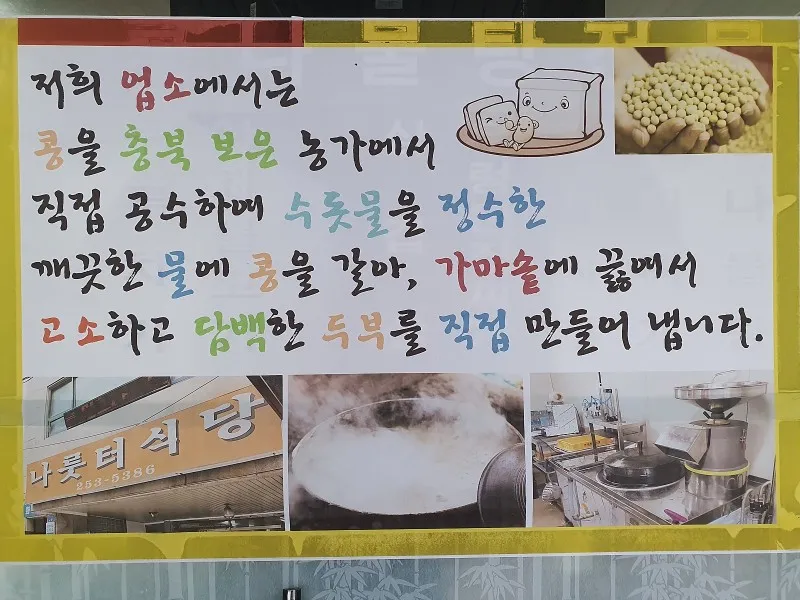 저희 업소에서는
콩을 충북 보은 농가에서
직접 공수하여 수돗물을 정수한
깨끗한 물에 콩을 갈아, 가마솥에 끓여서
고소하고 담백한 두부를 직접 만들어 냅니다.
나룻터식당
253-5386